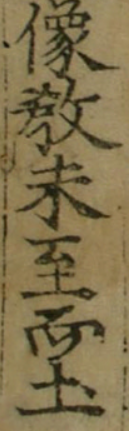 像教未至而土